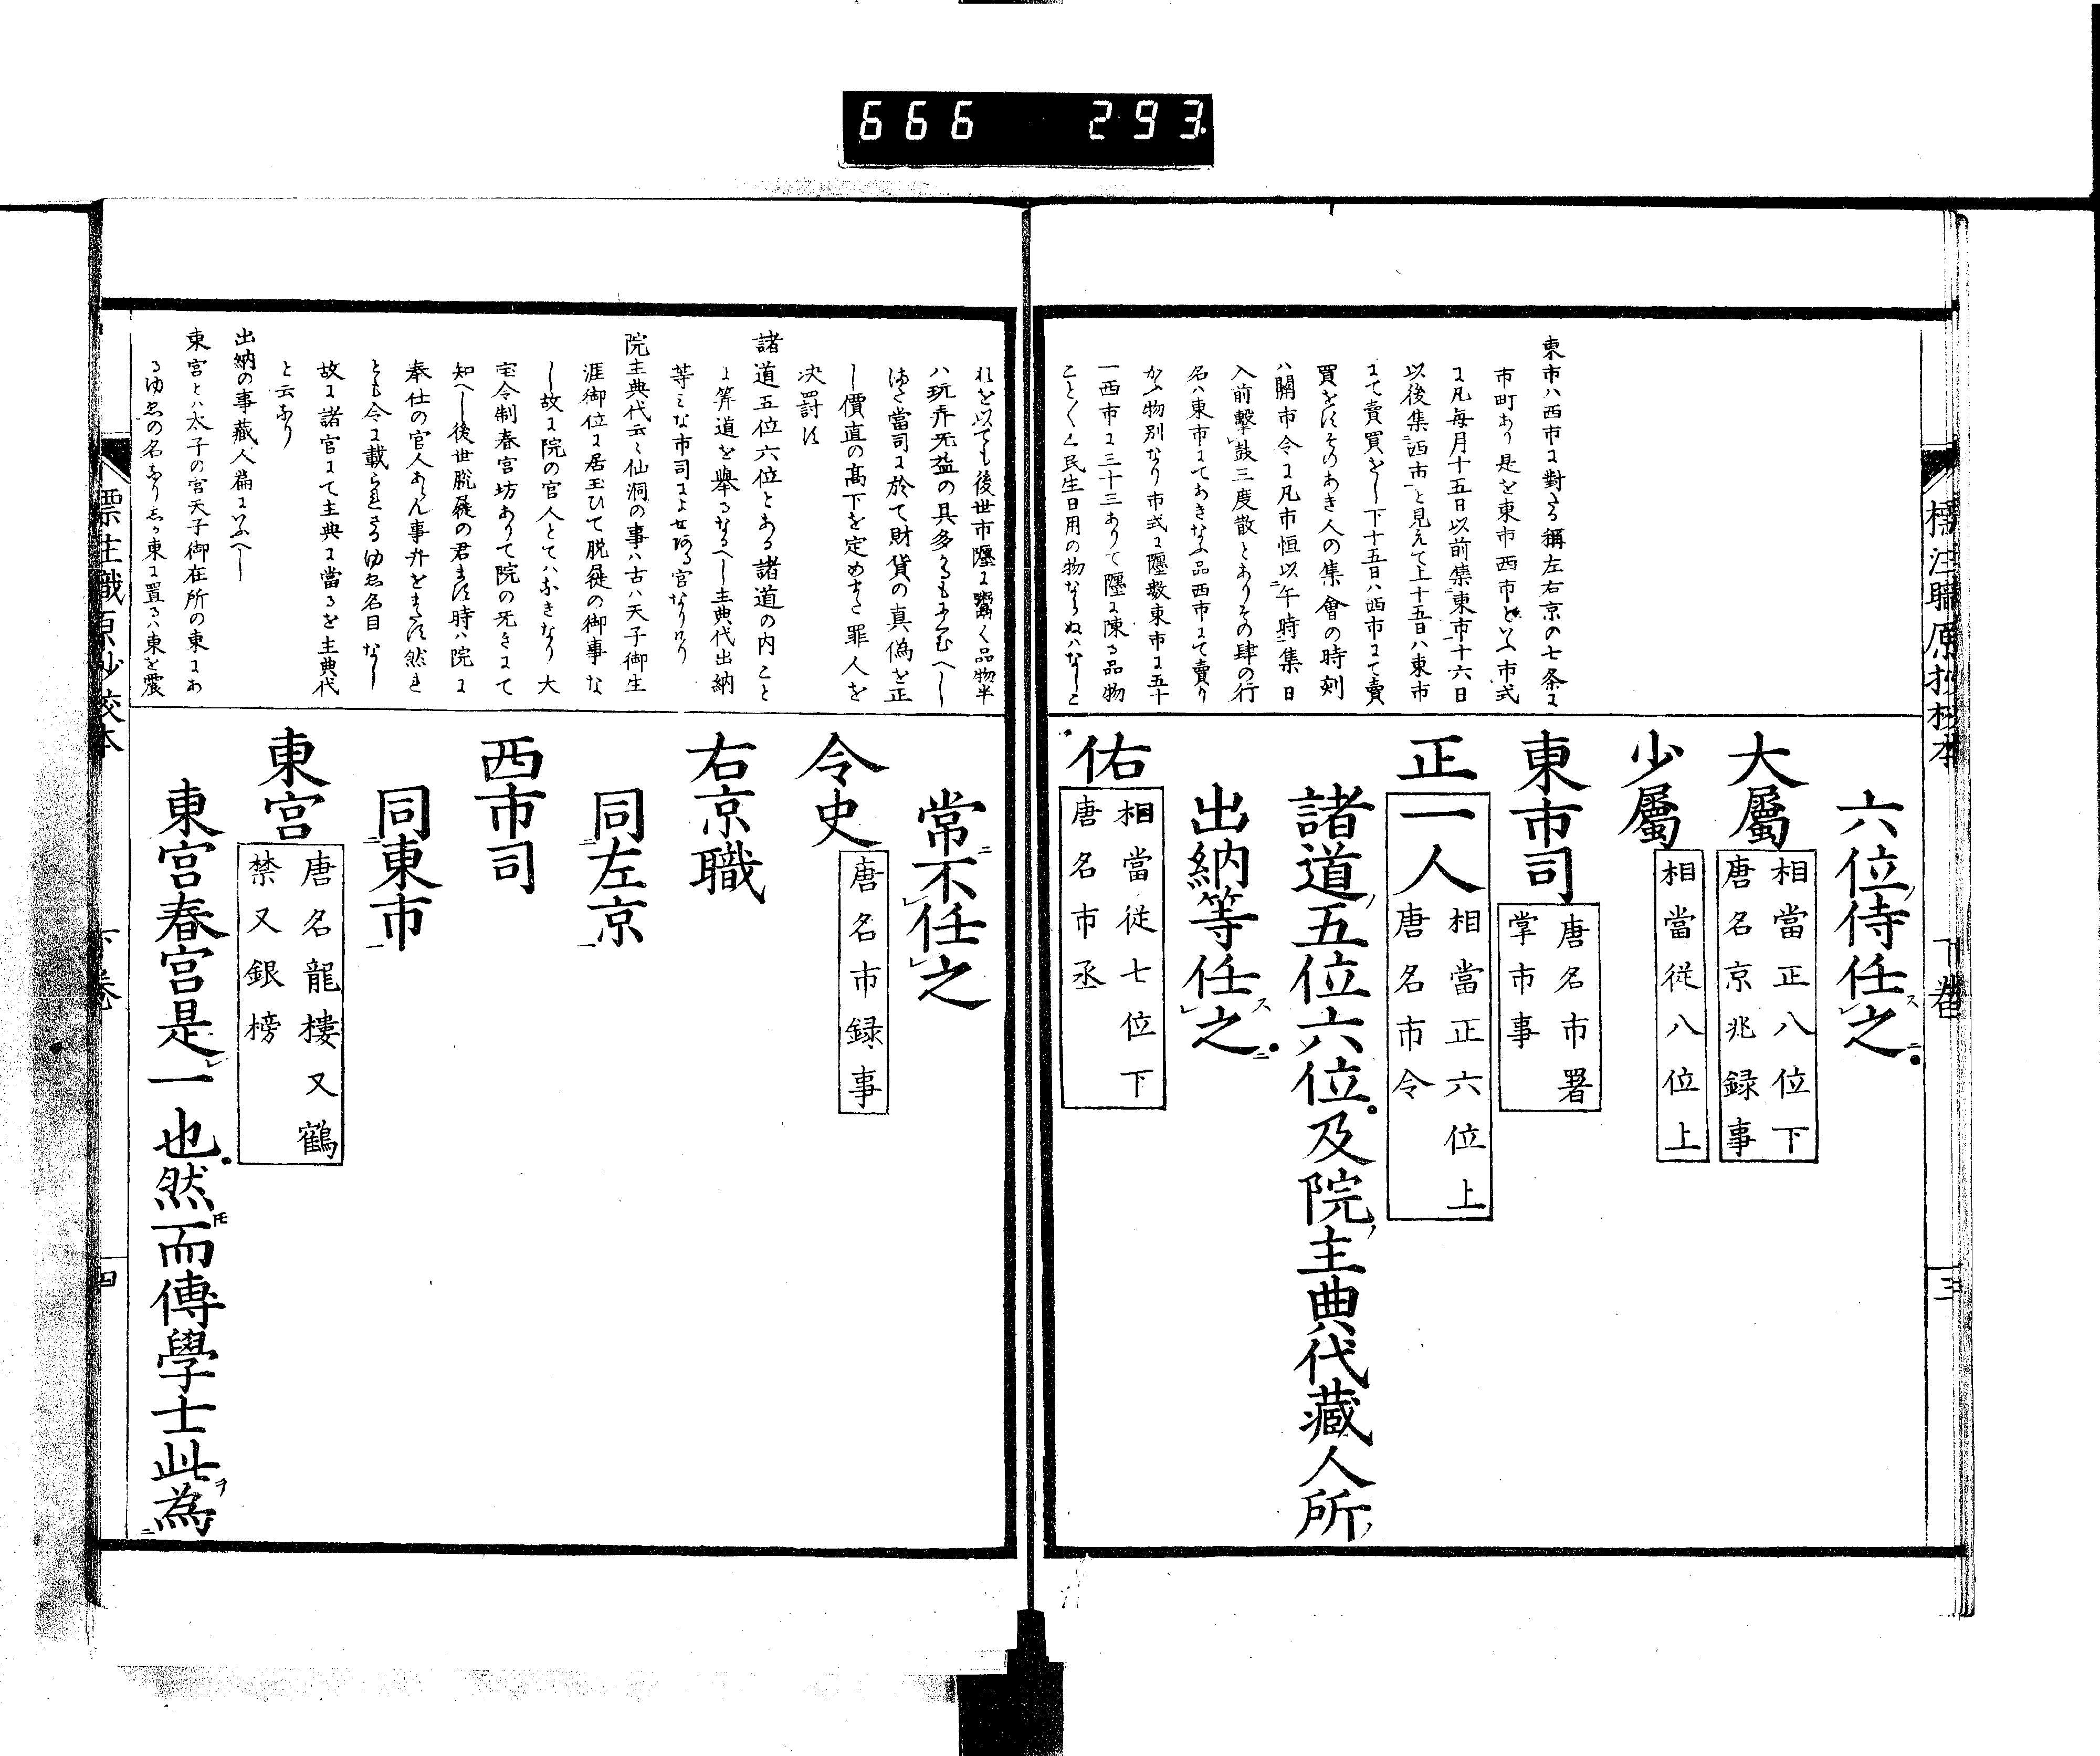 666 293
標注職原抄校本
下卷
三
東市ハ西市に對する稱左右京の七条に
市町あり是を東市西市といふ市式
に凡毎月十五日以前集東市十六日
以後集西市と見えて上十五日ハ東市
にて賣買をし下十五日ハ西市にて賣
買をすそのあき人の集會の時刻
ハ關市令に凡市恒以午時集日
入前撃鼓三度散とありその肆の行
名ハ東市にてあきなふ品西市にて賣り
かふ物別なり市式に廛數東市に五十
一西市に三十三ありて廛に陳る品物
ことくく民生日用の物ならぬハなしこ
六位侍任之
大屬
相當正八位下
唐名京兆録事
少屬
相當従八位上
東市司
唐名市署
掌市事
正一人
相當正六位上
唐名市令
諸道五位六位及院主典代藏人所
出納等任之
佑
相當従七位下
唐名市丞
れを以ても後世市廛に鬻く品物半
ハ玩弄无益の具多
當司に於て財貨の真偽を正
し價直の髙下を定めまた罪人を
决罸す
諸道五位六位とある諸道の内こと
に筭道を擧るなるへし主典代出納
等みな市司に官なりけり
院主典代云々仙洞の事ハ古ハ天子御生
涯御位に居玉ひて脱屣の御事な
し故に院の官人とてハなきなり大
宝令制春宮坊ありて院の无きにて
知へし後世脱屣の君ます時ハ院に
奉仕の官人あらん事弁をまたす然れ
とも今に載られさるゆゑ名目なし
故に諸官にて主典に當るを主典代
と云なり
出納の事藏人篇にいふへし
東宮とハ太子の宮天子御在所の東にあ
るゆゑの名なり東に置るハ東を震
常不任之
令史
唐名市録事
右京職
同左京
西市司
同東市
東宮
唐名龍樓又鶴
禁又銀榜
東宮春宮是一也然而傳學士此為
標注職原抄校本
下卷
四